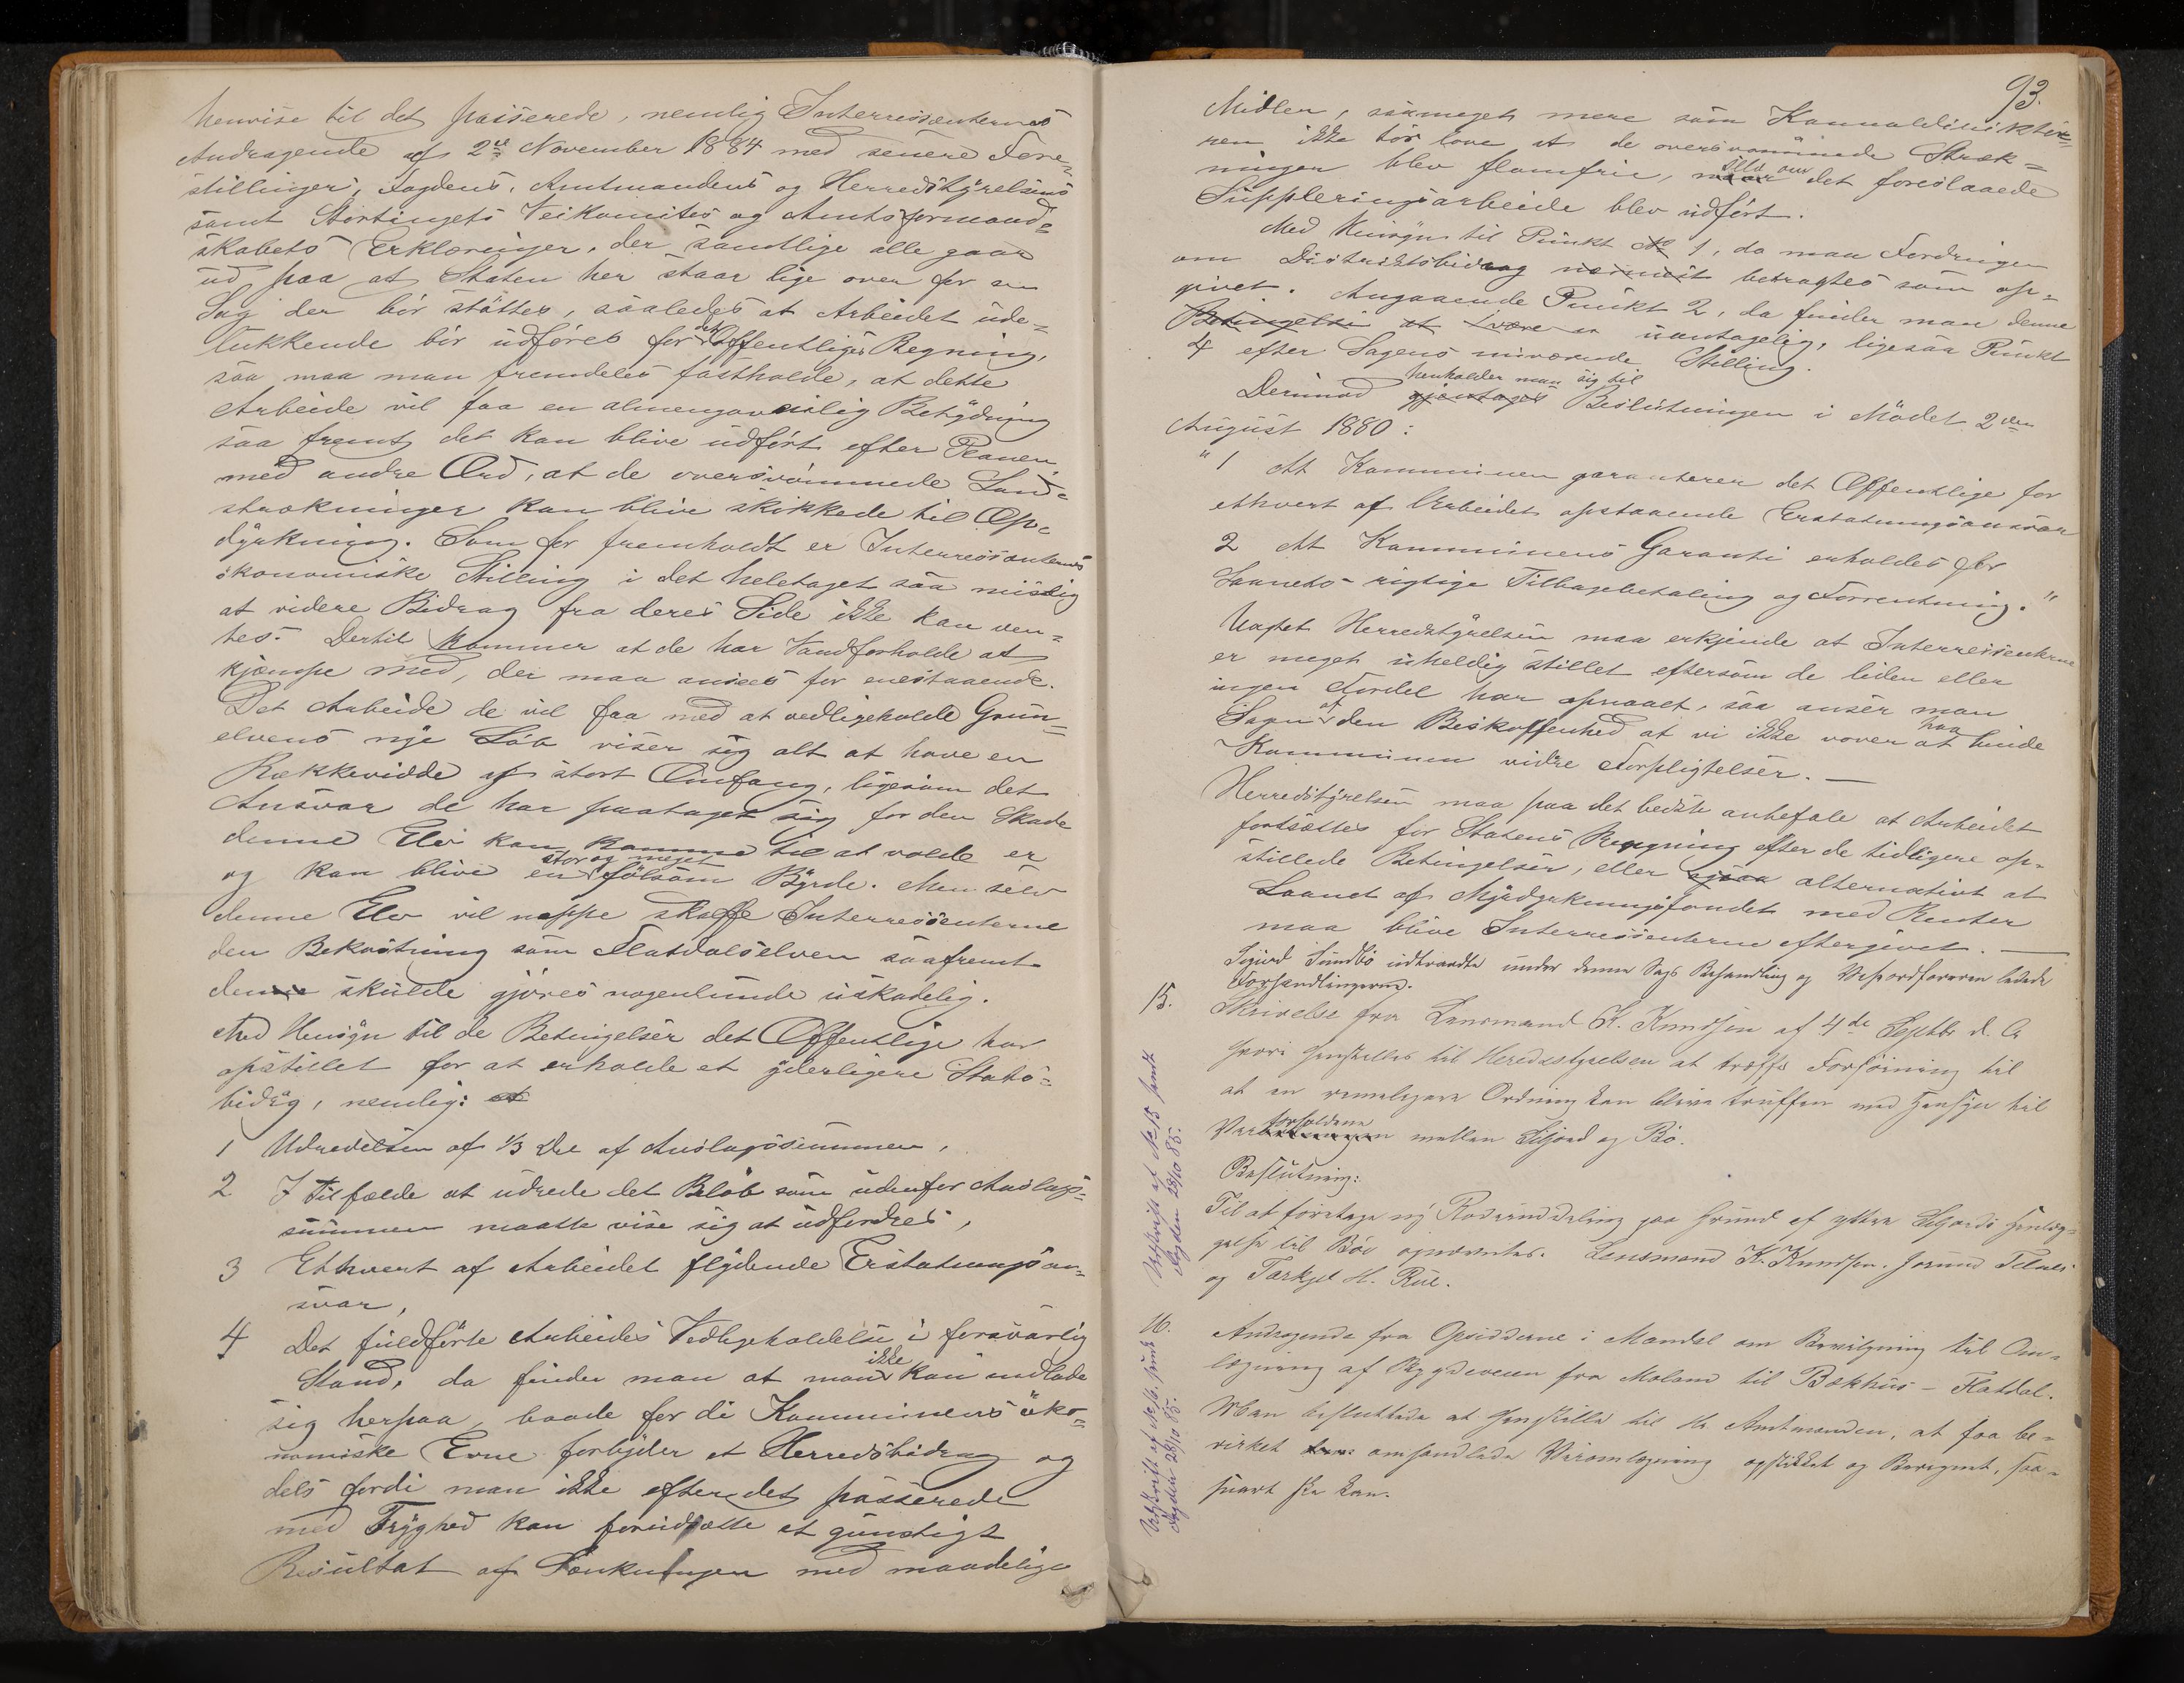 henvise til det passerede, nemlig Interressenternes
Andragende af 2de November 1884 med senere Fore-
stillinger, Fogdens, Amtmandens og Herredstyrelsens
samt Stortingets Veikomites og Amtsformand-
skabets Erklæringer, der samtlige alle gaar
ud paa at Staten her staar lige over for en
Sag der bör stöttes, saaledes at Arbeidet ude-
lukkende bör udföres for det Offentliges Regning,
saa maa man fremdeles fastholde, at dette
Arbeide vil faa en almengavnlig Betydning
saa fremt det kan blive udfört efter Planen,
med andre Ord, at de oversvömmede Land-
strækninger kan blive skikkede til Op-
dyrkning. Som för fremholdt er Interressenternes
ökonomiske Stilling i det heletaget saa mislig
at videre Bidrag fra deres Side ikke kan ven-
tes. Dertil kommer at de har Vandforholde at
kjæmpe med, der maa ansees for enestaaende.
Det Arbeide de vil faa med at vedligeholde Grun-
elvens nye Löb viser sig alt at have en
Rækkevidde af stort Omfang, ligesom det
Ansvar de har paataget sig for den Skade
denne Elv kan komme til at volde er
og kan blive en stor og meget fölsom Byrde. Men selv
denne Elv vil neppe skaffe Interressenterne
den Bekostning som Flatdalselven saafremt
denne skulde gjöres nogenlunde uskadelig.
Med Hensyn til de Betingelser det Offentlige har
opstillet for at erholde et yderligere Stats-
bidrag, nemlig: at
1 Udredelsen af 1/3 Del af Anslagssummen,
2 I Tilfælde at udrede det Belöb som udenfor Anslags-
summen maatte vise sig at udfordres,
3 Ethvert af Arbeidet flydende Erstatningsan-
svar,
4 Det fuldförte Arbeides Vedligeholdelse i forsvarlig
Stand, da finder man at man ikke kan indlade
sig herpaa, baade for di Kommunens öko-
nomiske Evne forbyder et Herredsbidrag og
dels fordi man ikke efter det passerede
med Tryghed kan forudsætte et gunstigt
Resultat af Sænkningen med maadelige
93.
Midler, saameget mere som Kanaldirektör-
ren ikke tör love at de oversvömmede Stræk-
ninger blev flomfrie, selv om det foreslaaede
Suppleringsarbeide blev udfört.
Med Hensyn til Punkt No 1, da maa Fordringen
om Distriktsbidrag nærmest betragtes som op-
givet. Angaaende Punkt 2, da finder man denne
Betingelse at være er uantagelig, ligesaa Punkt
4 efter Sagens nuværende Stilling.
Derimod henholder man sig til Beslutningen i Mödet 2den
August 1880:
"1 At Kommunen garanterer det Offentlige for
ethvert af Arbeidet opstaaende Erstatningsansvar
2 At Kommunens Garanti erholdes for
Laanets rigtige Tilbagebetaling og Forrentning."
Uagtet Herredstyrelsen maa erkjende at Interressenterne
er meget uheldig stillet eftersom de liden eller
ingen Fordel har opnaaet, saa anser man
Sagen af den Beskaffenhed at vi ikke vover at paa binde
Kommunen vidre Forpligtelser. —
Herredstyrelsen maa paa det bedste anbefale at Arbeidet
fortsættes for Statens Regning efter de tidligere op-
stillede Betingelser, eller alternativt at
Laanet af Myrdyrkningsfondet med Renter
maa blive Interressenterne eftergivet. —
Sigurd Sundbö udtraadte under denne Sags Behandling og Viseordföreren ledede
Forhandlingerne.
15. Skrivelse fra Lensmand K. Knudsen af 4de Septbr d. A.
hvori henstilles til Heredsstyrelsen at træffe Forföining til
at en rimeligere Ordning kan blive truffen med Hensyn til
Veiforholdene mellem Seljord og Bö.
Beslutning:
Til at foretage ny Rodeinddeling paa Grund af ytter Seljords Henlæg-
gelse til Böe opnævntes. Lensmand K. Knudsen. Jorund Telnes
og Tarkjel H. Rue.
Udskrift af No 15 sendt
Fogden 28/10 85.
16. Andragende fra Opsidderne i Mandal om Bevilgning til Om-
lægning af Bygdeveien fra Moland til Bækhus - Flatdal.
Man besluttede at henstille til Hr Amtmanden, at faa be-
virket den omhandlede Veiomlægning opstukket og Beregnet, saa-
snart ske kan.
Udskrift af No 16. sendt
Fogden 28/10 85.